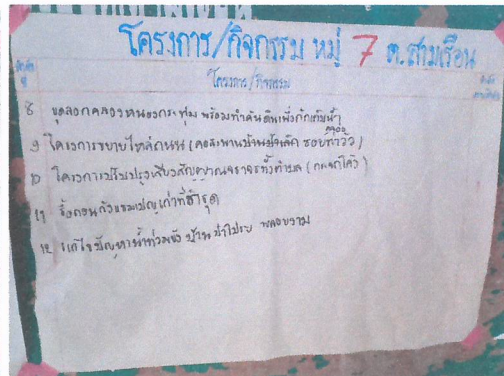 โครงการ/กิจกรรม หมู่ 7 ต.สามเรือน
ลำดับที่ โครงการ/กิจกรรม
8 ขุดลอกคลองหนองกระทุ่ม พร้อมทำคันดินเพื่อกักเก็บน้ำ
9 โครงการขยายไหล่ถนน (คอสะพานบ้าน ซอย
10 โครงการปรับปรุงเสียงสัญญาณจราจรทั้งตำบล (กระจกโค้ง)
11 รื้อถอนที่ชำรุด
12 แก้ไขปัญหาน้ำท่วมขัง บ้าน พลอยงาม